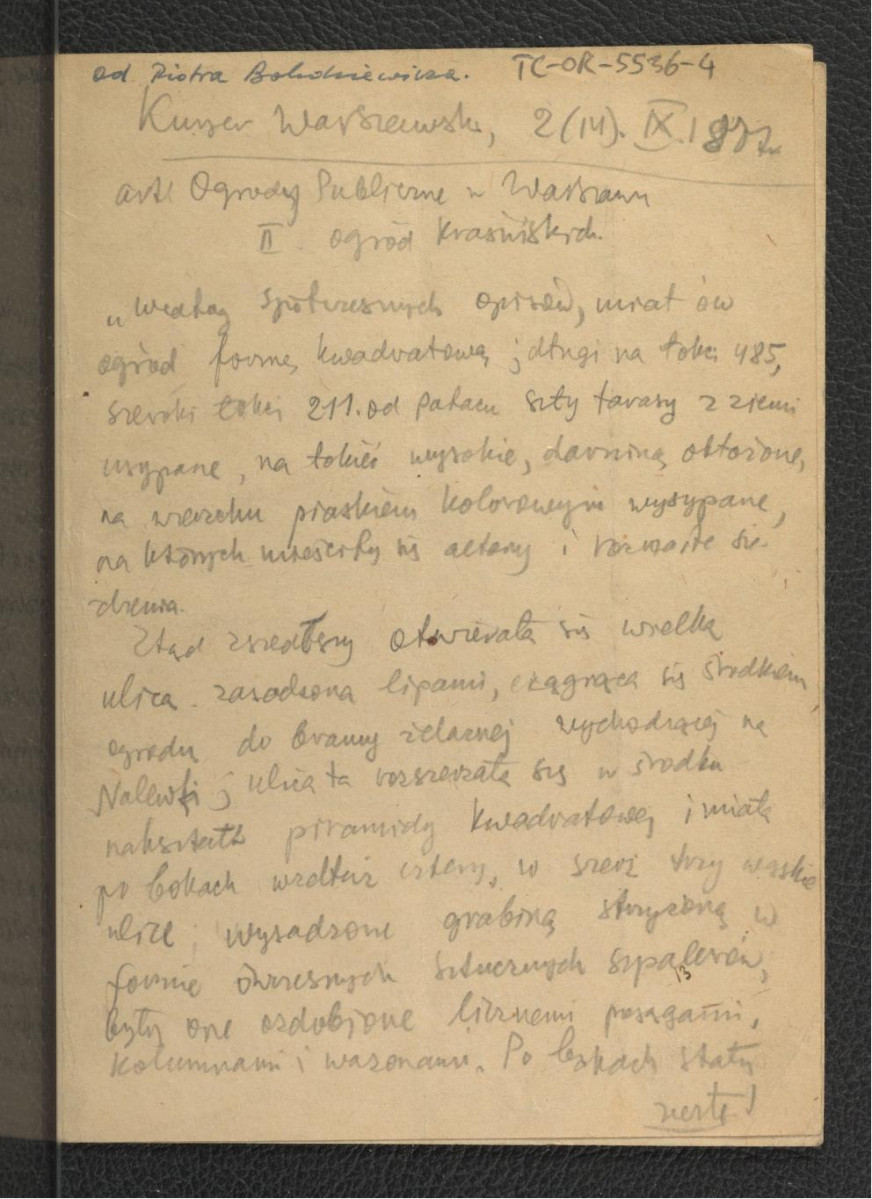 od Piotra TC-OR-5536-4
Kurier Warszawski, 2 (14). IX. 187
art. Ogrody Publiczne w Warszawie
II. ogród Krasińskich.
„Według spółczesnych opisów, miał ów
ogród formę kwadratową; długi na łokci 485,
szeroki łokci 211. od Pałacu szły tarasy z ziemi
usypane, na łokieć wysokie, darniną obłożone,
na wierzchu piaskiem kolorowym wysypane,
na których mieściły się altany i rozmaite sie-
dzenia.
Ztąd zszedłszy otwierała się wielka
ulica zasadzona lipami, ciągnąca się środkiem
ogrodu do bramy żelaznej wychodzącej na
Nalewki; ulica ta rozszerzała się w środku
nakształt piramidy kwadratowej i miała
po bokach wzdłuż cztery, w szerz trzy wąskie
ulice wysadzone grabiną strzyżoną w
formie ówczesnych sztucznych szpalerów,
13
były one ozdobione licznemi posągami,
kolumnami i wazonami. Po bokach stały